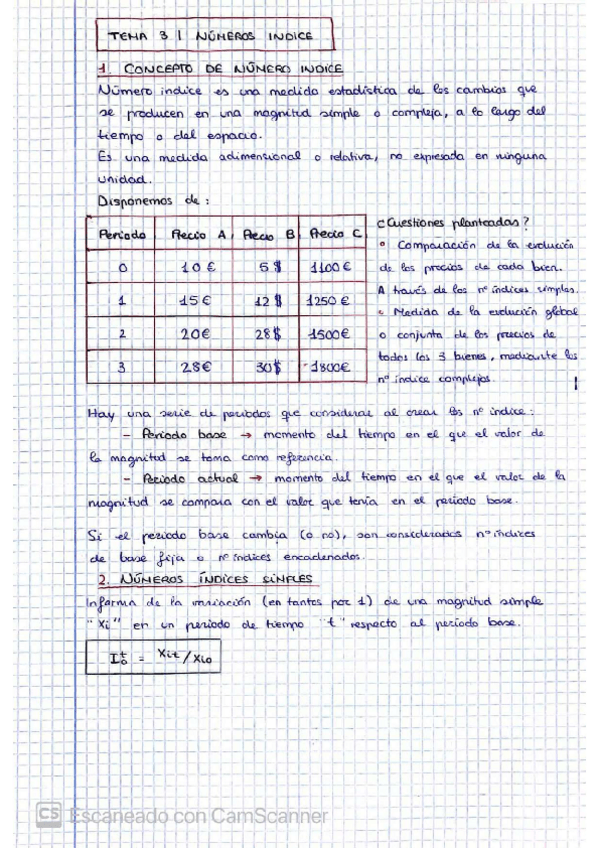 TEMA 3 | NÚMEROS INDICE
1. CONCEPTO DE NÚMERO INDICE
Número indice es una medida estadística de los cambios que
se producen en una magnitud simple o compleja, a lo largo del
tiempo o del espacio.
Es una medida adimensional o relativa, no expresada en ninguna
unidad.
Disponemos de:
Periodo Precio A Precio B Precio C
0 10€ 5$ 1100€
1 15€ 12$ 1250€
2 20€ 28$ 1500€
3 28€ 30$ 1800€
¿Cuestiones planteadas?
• Comparación de la evolución
de los precios de cada bien.
A través de los nº índices simples.
• Medida de la evolución global
o conjunta de los precios de
todos los 3 bienes, mediante los
nº índice complejos.
Hay una serie de periodos que considerar al crear los nº índice:
- Periodo base → momento del tiempo en el que el valor de
la magnitud se toma como referencia.
- Periodo actual → momento del tiempo en el que el valor de la
magnitud se compara con el valor que tenía en el periodo base.
Si el periodo base cambia (o no), son considerados nº índices
de base fija o nº índices encadenados.
2. NÚMEROS ÍNDICES SIMPLES
Informa de la variación (en tantos por 1) de una magnitud simple
"Xi" en un periodo de tiempo "t" respecto al periodo base.
I₀ᵗ = Xit / Xi0
CS Escaneado con CamScanner